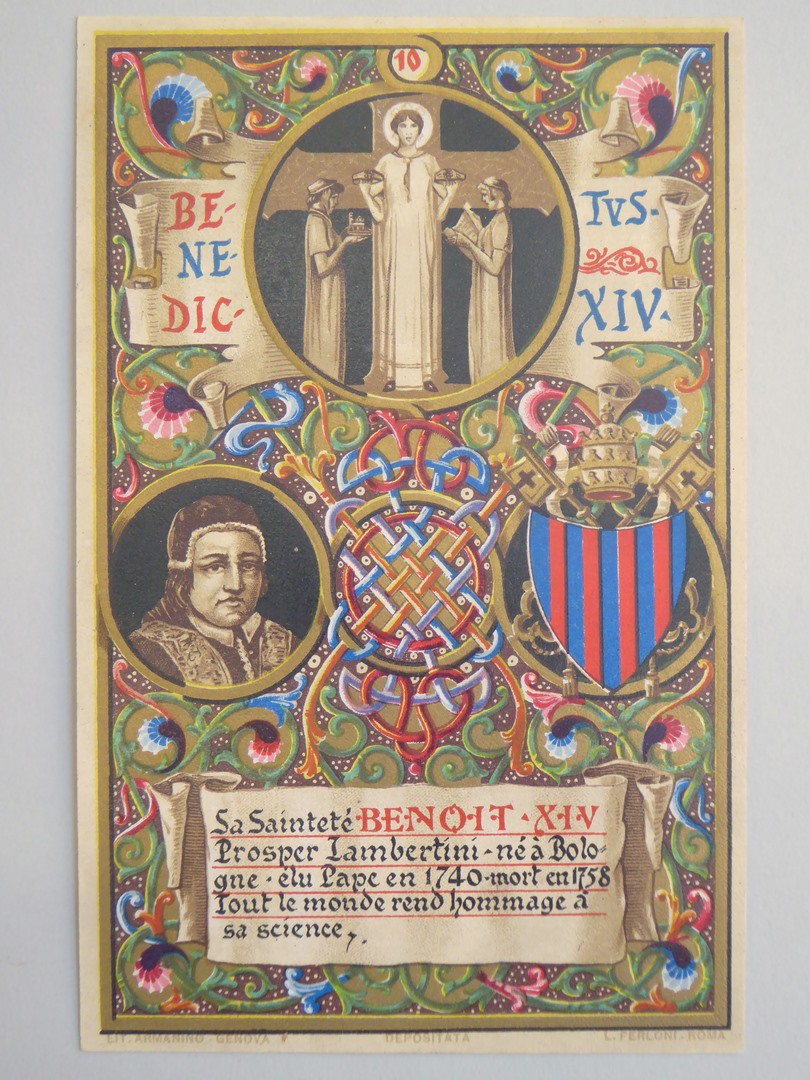 10
BE-
NE-
DIC-
TVS.
XIV.
Sa Sainteté·BENOIT·XIV
Prosper Lambertini - né à Bolo-
gne · élu Pape en 1740 - mort en 1758
Tout le monde rend hommage à
sa science,.
LIT. ARMANINO - GENOVA
DEPOSITATA
L. FERLONI - ROMA